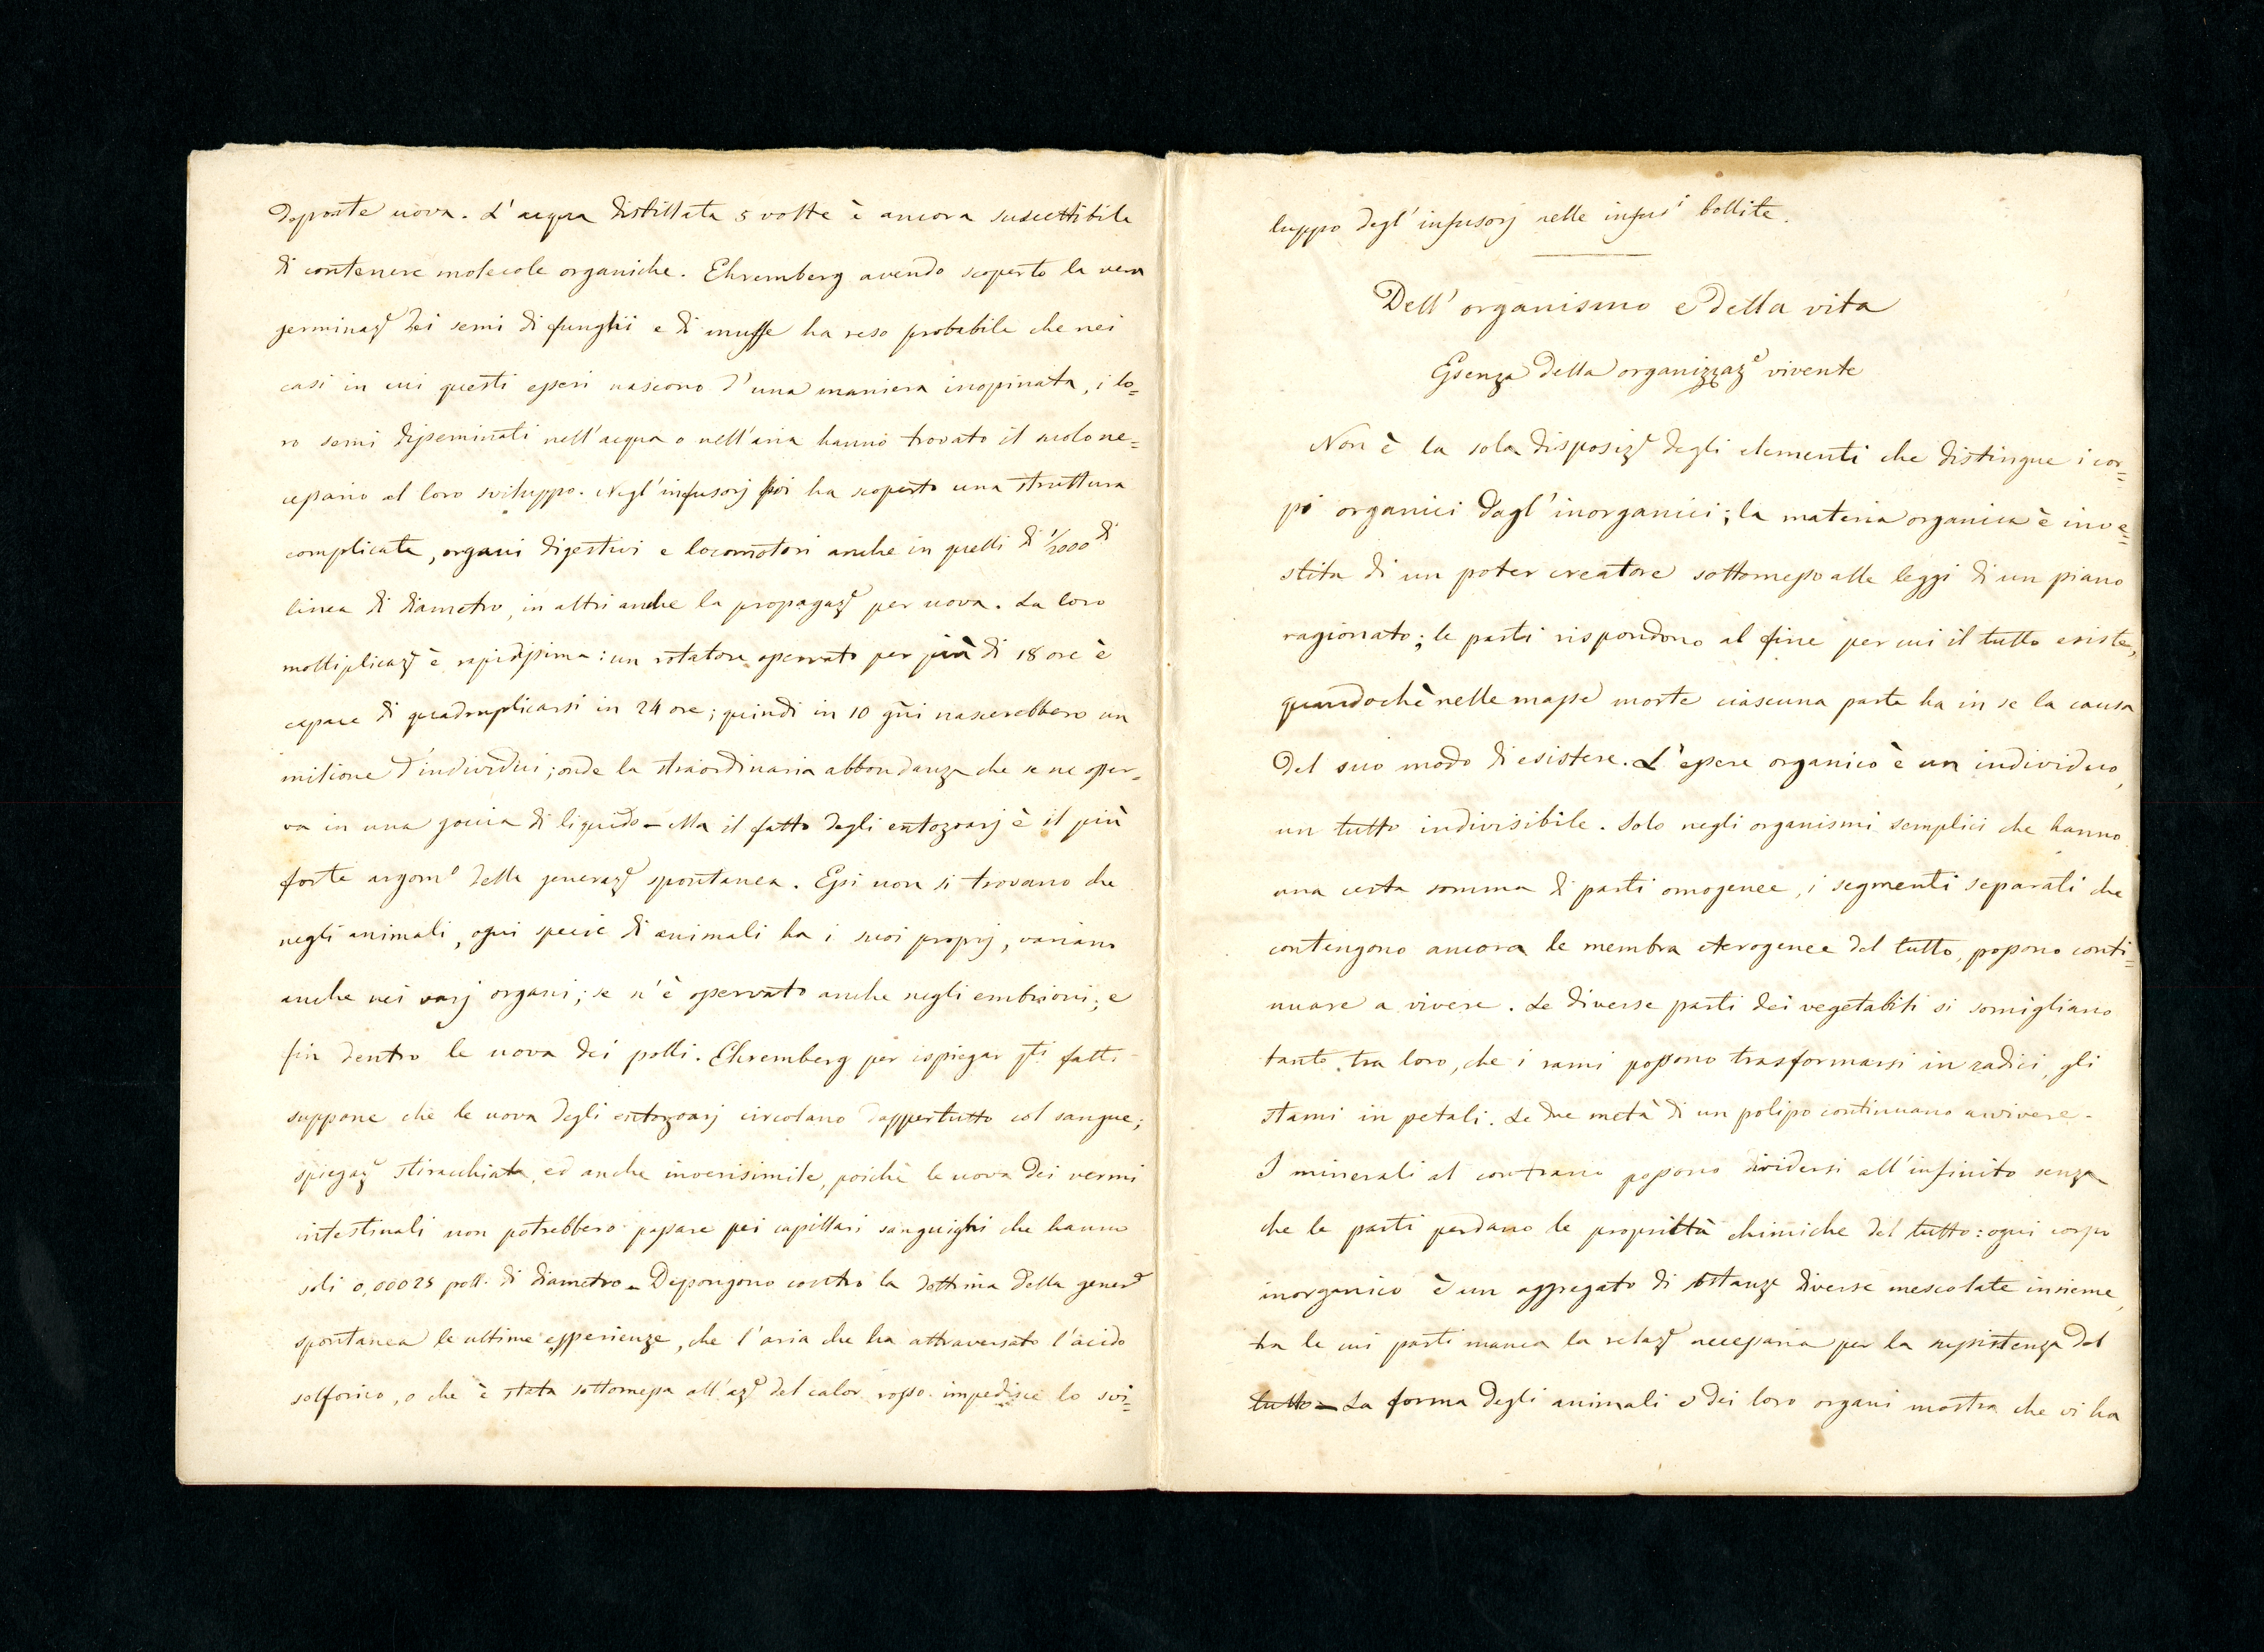 deposte uova. L'acqua distillata 5 volte è ancora suscettibile
di contenere molecole organiche. Ehremberg avendo scoperto la vera
germinazᵉ dei semi di funghi e di muffe ha reso probabile che nei
casi in cui questi esseri nascono d'una maniera inopinata, i lo=
ro semi disseminati nell'acqua o nell'aria hanno trovato il suolo ne=
cessario al loro sviluppo. Negl'infusorj poi ha scoperto una struttura
complicata, organi digestivi e locomotori anche in quelli di 1/2000 di
linea di diametro, in altri anche la propagazᵉ per uova. La loro
moltiplicazᵉ è rapidissima: un rotatore osservato per più di 18 ore è
capace di quadruplicarsi in 24 ore; quindi in 10 gni nascerebbero un
milione d'individui; onde la straordinaria abbondanza che se ne osser=
va in una goccia di liquido - Ma il fatto degli entozoarj è il più
forte argomᵒ della generazᵉ spontanea. Essi non si trovano che
negli animali, ogni specie di animali ha i suoi proprj, variano
anche nei varj organi; se n'è osservato anche negli embrioni; e
fin dentro le uova dei polli. Ehremberg per ispiegar qti fatti
suppone che le uova degli entozoarj circolano dappertutto col sangue;
spiegazᵉ stiracchiata, ed anche inverisimile, poichè le uova dei vermi
intestinali non potrebbero passare pei capillari sanguighi che hanno
soli 0,00025 poll. di diametro - Depongono contro la dottrina della generᵉ
spontanea le ultime esperienze, che l'aria che ha attraversato l'acido
solforico, o che è stata sottomessa all'azᵉ del calor rosso impedisce lo svi=
luppo degl'infusorj nelle infusⁱ bollite.
Dell'organismo e della vita
Essenza della organizzazᵉ vivente
Non è la sola disposizᵉ degli elementi che distingue i cor=
pi organici dagl'inorganici; la materia organica è inve=
stita di un poter creatore sottomesso alle leggi di un piano
ragionato; le parti rispondono al fine per cui il tutto esiste,
quandochè nelle masse morte ciascuna parte ha in se la causa
del suo modo di esistere. L'essere organico è un individuo,
un tutto indivisibile. Solo negli organismi semplici che hanno
una certa somma di parti omogenee, i segmenti separati che
contengono ancora le membra eterogenee del tutto, possono conti=
nuare a vivere. Le diverse parti dei vegetabili si somigliano
tanto tra loro, che i rami possono trasformarsi in radici, gli
stami in petali. Le due metà di un polipo continuano a vivere -
I minerali al contrario possono dividersi all'infinito senza
che le parti perdano le proprietà chimiche del tutto: ogni corpo
inorganico è un aggregato di sstanze diverse mescolate insieme,
tra le cui parti manca la relazᵉ necessaria per la sussistenza del
tutto - La forma degli animali e dei loro organi mostra che vi ha